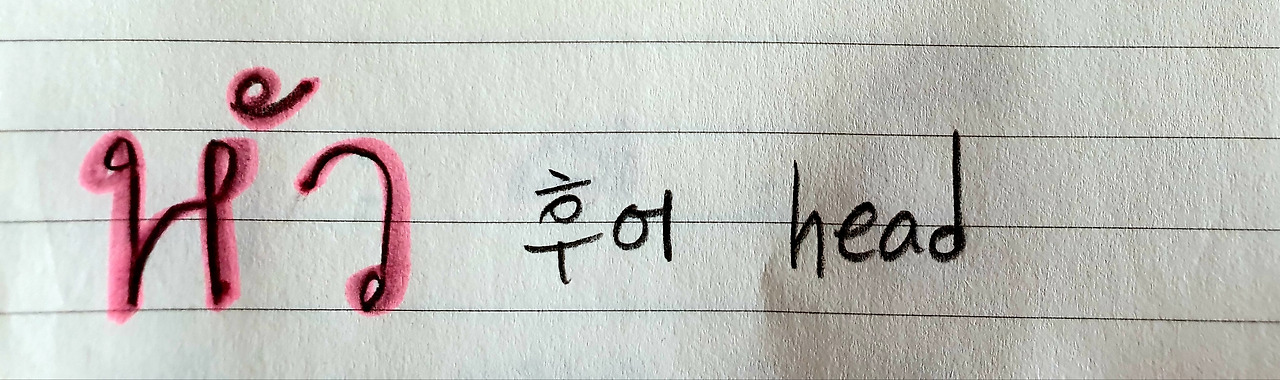 หัว 후어 head